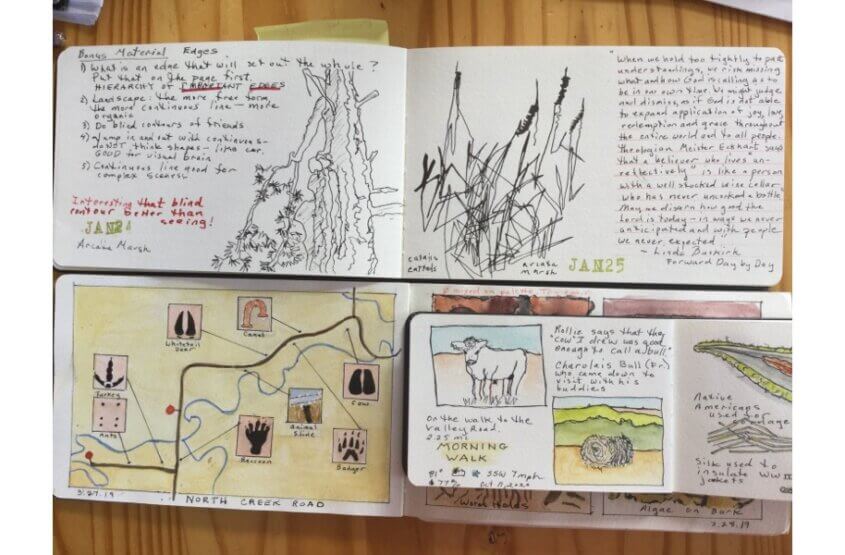 Bonus Material Edges
1) What is an edge that will set out the whole?
Put that on the page first.
HIERARCHY OF IMPORTANT EDGES
2) Landscape: the more free form
the more continuous line - more
organic
3) Do blind contours of friends
4) Jump in and out with continuous-
do NOT think shapes - like car.
GOOD for visual brain
5) Continuous line good for
complex scenes.
Interesting that blind
contour better than
seeing!
JAN24
Arcata Marsh
cattails
arcata
marsh
JAN25
"When we hold too tightly to past
understandings, we risk missing
what and how God is calling us to
be in our own time. We might judge
and dismiss, as if God is not able
to expand application of joy, love,
redemption and grace throughout
the entire world and to all people.
Theologian Meister Eckhart says
that a believer who lives un-
reflectively "is like a person
with a well stocked wine cellar
who has never uncorked a bottle."
May we discern how good the
Lord is today - in ways we never
anticipated and with people
we never expected.
- Linda Buskirk
Forward Day by Day
Whitetail
Deer
Camel
Turkey
Ants
Cow
Animal
Slide
Raccoon
Badger
3.27.19
NORTH CREEK ROAD
mixed on palette
On the walk to the
Valley Road.
2.25 mi
MORNING
WALK
81°
77%
SSW 7mph
Oct 11, 2020
Rollie says that the
"cow" I drew was good
enough to call a bull.
Charolais Bull (Fr.)
who came down to
visit with his
buddies
Native
Americans
used for
Silk used to
insulate WW II
jackets
Algae on Bark
3.28.19